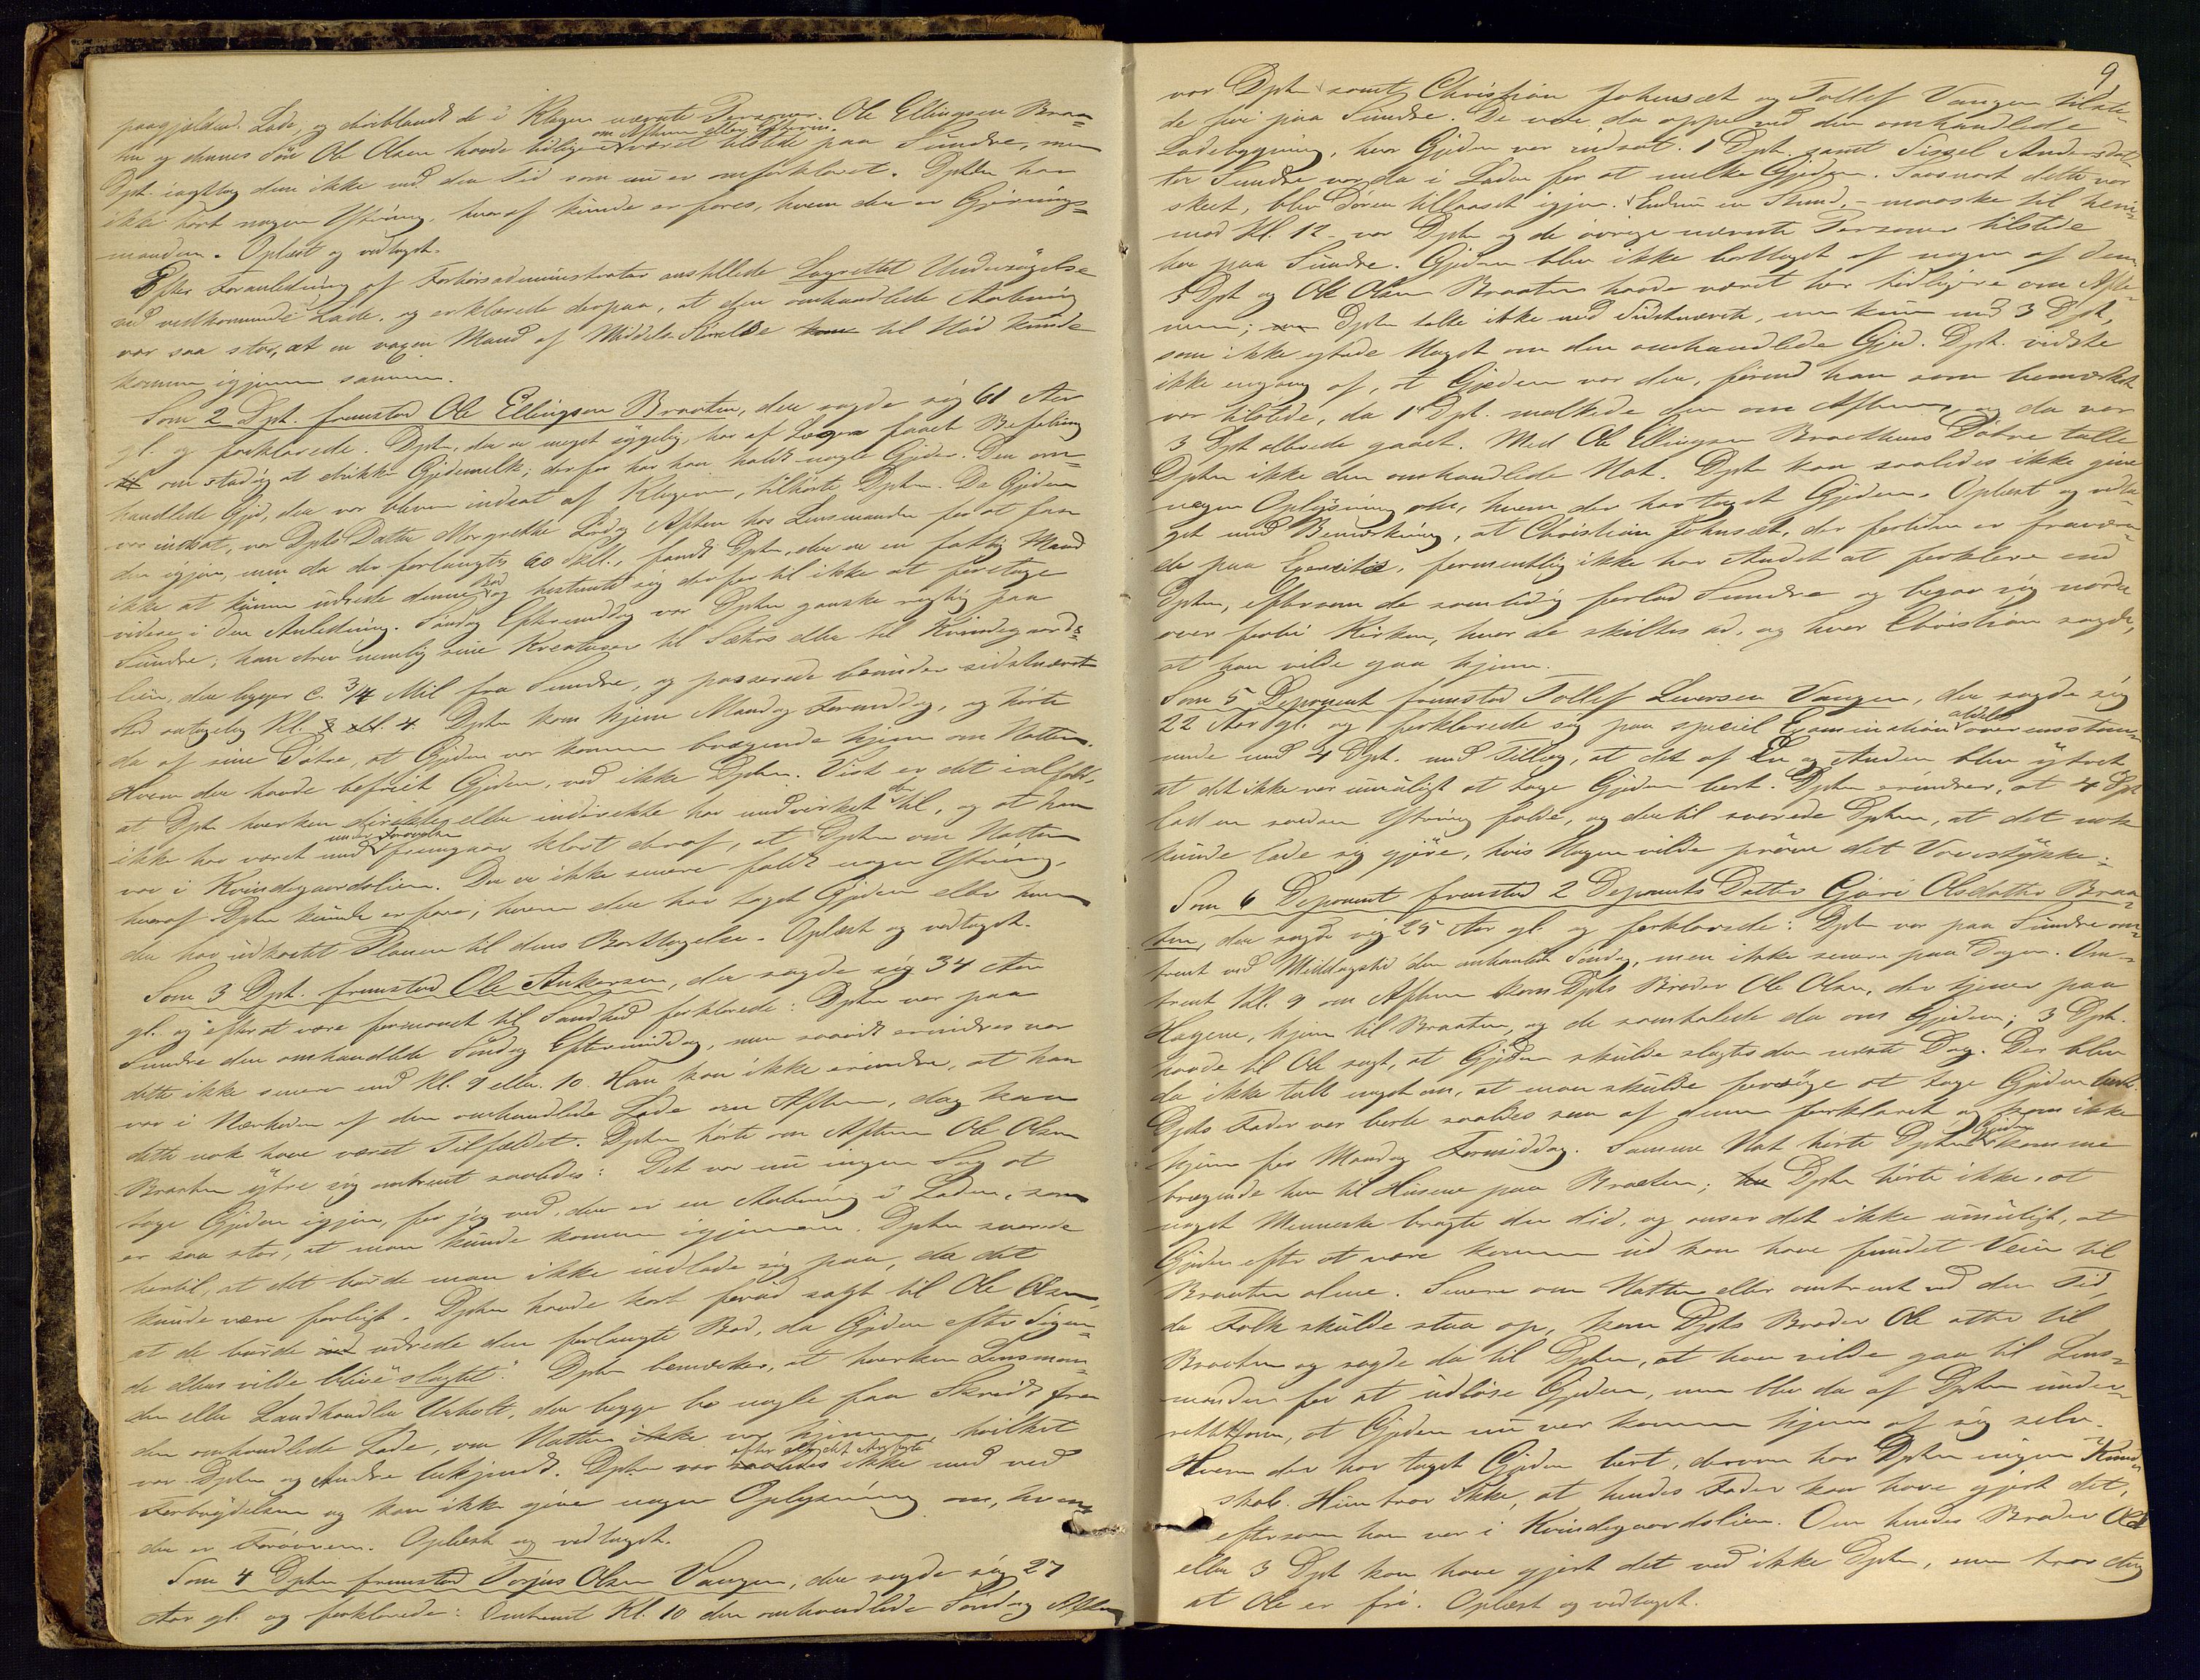 paagjældende Lade, og deriblandt de i Klagen nævnte Personer. Ole Ellingsen Braa-
ten og dennes Søn Ole Olsen havde tidligere om Aftenen eller Efterm. været tilstede paa Sundre, men
Dpt. iagttog dem ikke ved den Tid som nu er omforklaret. Dpten har
ikke hørt nogen Yttring, hvoraf kunde erfares, hvem der er Gjernings-
manden. Oplæst og vedtaget.
Efter Foranledning af Forhørsadministrator anstillede Lagrettet Undersøgelse
ved vedkommende Lade, og erklærede derpaa, at den omhandlede Aabning
var saa stor, at en voxen Mand af Middels Størrelse til Nød kunde
komme igjennem samme.
Som 2 Dpt. fremstod Ole Ellingsen Braaten, der sagde sig 61 Aar
gl. og forklarede. Dpten, der er meget sygelig, har af Lægen faaet Befaling
om stadig at drikke Gjedemelk; derfor har han holdt nogle Gjeder. Den om-
handlede Gjed, der var bleven indsat af Klageren, tilhørte Dpten. Da Gjeden
var indsat, var Dpts Datter Margrethe Lørdag Aften hos Lensmanden for at faa
den igjen, men da der forlangtes 60 Skill., fandt Dpten, der er en fattig Mand
ikke at kunne udrede denne Bod og bestemte sig derfor til ikke at foretage
videre i den Anledning. Søndag Eftermiddag var Dpten ganske rigtig paa
Sundre; han drev nemlig sine Kreaturer til Sæters eller til Kvindegaards-
lien, der ligger c. 3/4 Mil fra Sundre, og passerede herunder sidstnævnte
Sted antagelig Kl. 4. Dpten kom hjem Mandag Formiddag, og hørte
da af sine Døtre, at Gjeden var kommen brægende hjem om Natten.
Hvem der havde befriet Gjeden, ved ikke Dpten. Vist er det ialfald,
at Dpt. hverken direkte eller indirekte har medvirket der til, og at han
ikke har været med under Foretagelsen fremgaar klart deraf, at Dpten om Natten
var i Kvindegaardslien. Der er ikke senere faldt nogen Yttring,
hvoraf Dpten kunde erfare, hvem der har taget Gjeden eller hvem
der har udkastet Planen til dens Borttagelse. Oplæst og vedtaget.
Som 3 Dpt. fremstod Ole Ankersen, der sagde sig 34 Aar
gl. og efter at være formanet til Sandhed forklarede: Dpten var paa
Sundre den omhandlede Søndag Eftermiddag, men saavidt erindres var
dette ikke senere end Kl. 9 eller 10. Han kan ikke erindre, at han
var i Nærheden af den omhandlede Lade om Aftenen, dog kan
dette nok have været Tilfældet. Dpten hørte om Aftenen Ole Olsen
Braaten yttre sig omtrent saaledes: Det var nu ingen Sag at
tage Gjeden igjen, for jeg ved, der er en Aabning i Laden, som
er saa stor, at man kunde komme igjennem. Dpten svarede
hertil, at det burde man ikke indlade sig paa, da det
kunde være farligt. Dpten havde kort forud sagt til Ole Olsen,
at de burde udrede den forlangte Bod, da Gjeden efter Sigen-
de ellers vilde blive "slagtet". Dpten bemærker, at hverken Lensman-
den eller Landhandler Urholt, der begge bo nogle faa Skridt fra
den omhandlede Lade, om Natten ikke var hjemme, hvilket
var Dpten og Andre bekjendt. Dpten var efter ikke med ved
Forbrydelsen og kan ikke give nogen Oplysning om, hvem
der er Forøveren. Oplæst og vedtaget.
Som 4 Dpten fremstod Torjus Olsen Vangen, der sagde sig 27
Aar gl. og forklarede: Omtrent Kl. 10 den omhandlede Søndag Aften
9
var Dpten samt Christian Johnsæt og Tollef Vangen tilste-
de her paa Sundre. De vare da oppe ved den omhandlede
Ladebygning, hvor Gjeden var indsat. 1 Dpt. samt Sissel Andersdat-
ter Sundre var da i Laden for at melke Gjeden. Saasnart dette var
skeet, blev Døren tillaaset igjen. Endnu en Stund, - maaske til hen-
mod Kl. 12 - var Dpten og de øvrige nævnte Personer tilstede
her paa Sundre. Gjeden blev ikke borttaget af nogen af dem.
3 Dpt og Ole Olsen Braaten havde været her tidligere om Afte-
nen; Dpten talte ikke med Sidstnævnte, men kun med 3 Dpt,
som ikke yttrede Noget om den omhandlede Gjed. Dpt. vidste
ikke engang af, at Gjeden var der, førend han som bemærket
var tilstede, da 1ste Dpt. melkede den om Aftenen, og da var
3 Dpt allerede gaaet. Med Ole Ellingsen Braathens Døtre talte
Dpten ikke den omhandlede Nat. Dpten kan saaledes ikke give
nogen Oplysning om, hvem der har taget Gjeden. Oplæst og vedta-
get med Bemærkning, at Christian Johnsæt, der fortiden er fraværen-
de paa Exercitie, formentlig ikke har Andet at forklare end
Dpten, eftersom de samtidig forlod Sundre og begav sig nord-
over forbi Kirken, hvor de skiltes ad, og hvor Christian sagde,
at han vilde gaa hjem.
Som 5 Deponent fremstod Tollef Leversen Vangen, der sagde sig
22 Aar gl. og forklarede sig paa speciel Examination aldeles overensstem-
mende med 4 Dpt. med Tillæg, at det af En og Anden blev yttret,
at det ikke var umuligt at tage Gjeden bort. Dpten erindrer, at 4 Dpt
lod en saadan Yttring falde, og dertil svarede Dpten, at det nok
kunde lade sig gjøre, hvis Nogen vilde prøve det Vovestykke.
Som 6 Deponent fremstod 2 Deponents Datter Guri Olsdatter Braa-
ten, der sagde sig 25 Aar gl. og forklarede: Dpten var paa Sundre om-
trent ved Middagstid den omhandlede Søndag, men ikke senere paa Dagen. Om-
trent Kl. 9 om Aftenen kom Dpts Broder Ole Olsen, der tjener paa
Hagene, hjem til Braaten, og de samtalede da om Gjeden; 3 Dpt.
havde til Ole sagt, at Gjeden skulde slagtes den næste Dag. Der blev
da ikke talt noget om, at man skulde forsøge at tage Gjeden bort.
Dpts Fader var borte saaledes som af denne forklaret og kom ikke
hjem før Mandag Formiddag. Samme Nat hørte Dpten Gjeden komme
brægende hen til Husene paa Braaten; Dpten hørte ikke, at
noget Menneske bragte den did, og anser det ikke umuligt, at
Gjeden efter at være kommen ud kan have fundet Veien til
Braaten alene. Senere om Natten eller omtrent ved den Tid,
da Folk skulde staa op, kom Dpts Broder Ole atter til
Braaten og sagde da til Dpten, at han vilde gaa til Lens-
manden for at udløse Gjeden, men blev da af Dpten under-
rettet om, at Gjeden nu var kommen hjem af sig selv.
Hvem der har taget Gjeden bort, derom har Dpten ingen Kund-
skab. Hun tror ikke, at hendes Fader kan have gjort det,
eftersom han var i Kvindegaardslien. Om hendes Broder Ole
eller 3 Dpt kan have gjort det ved ikke Dpten, men tror dog
at Ole er fri. Oplæst og vedtaget.